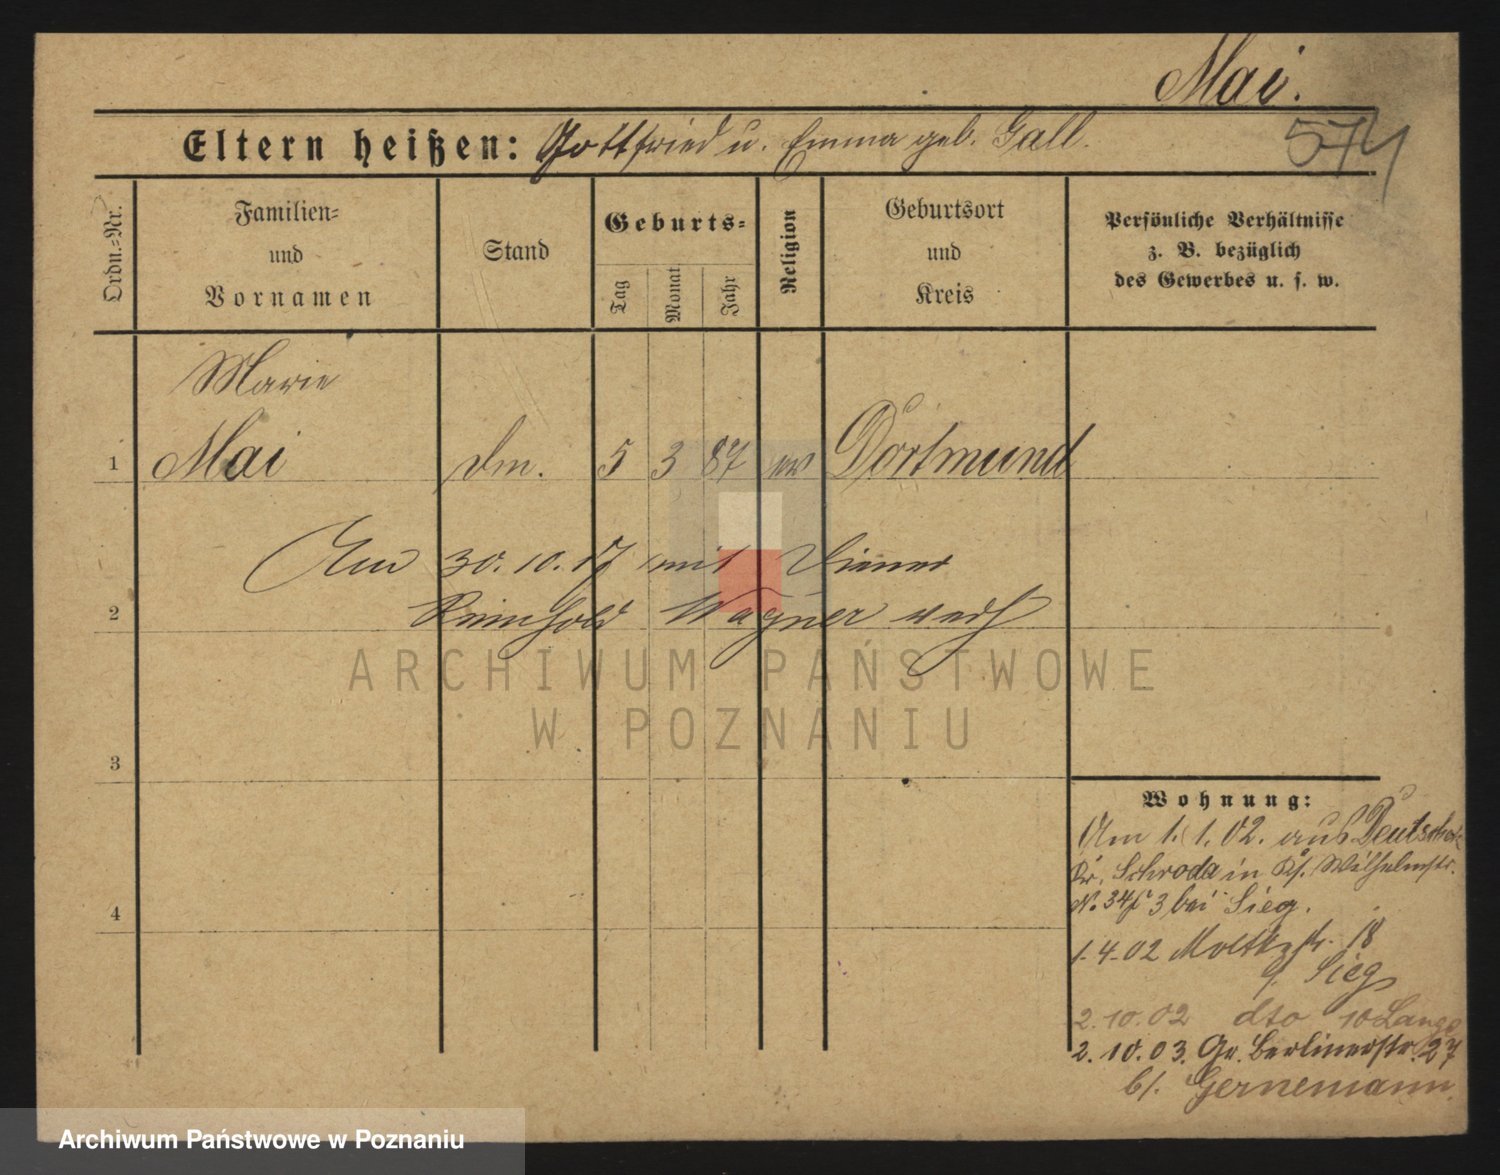 Mai.
Eltern heißen: Gottfried u. Emma geb. Gall.
574
Ordn.=Nr.
Familien=
und
Vornamen
Stand
Geburts=
Tag
Monat
Jahr
Religion
Geburtsort
und
Kreis
Persönliche Verhältnisse
z. B. bezüglich
des Gewerbes u. s. w.
Marie
1 Mai dm. 5 3 87 ev Dortmund
Am 30.10.17 mit Diener
2 Reinhold Wagner verh
ARCHIWUM PAŃSTWOWE
W POZNANIU
3
Wohnung:
Am 1.1.02. aus Deutscheck
Kr. Schroda in Pos. Wilhelmstr.
4 No. 34 3 bei Sieg.
1.4.02 Moltkestr. 18
b/ Sieg
2.10.02 dto 10 Lange
2.10.03. Gr. Berlinerstr. 27
b/. Gernemann
Archiwum Państwowe w Poznaniu